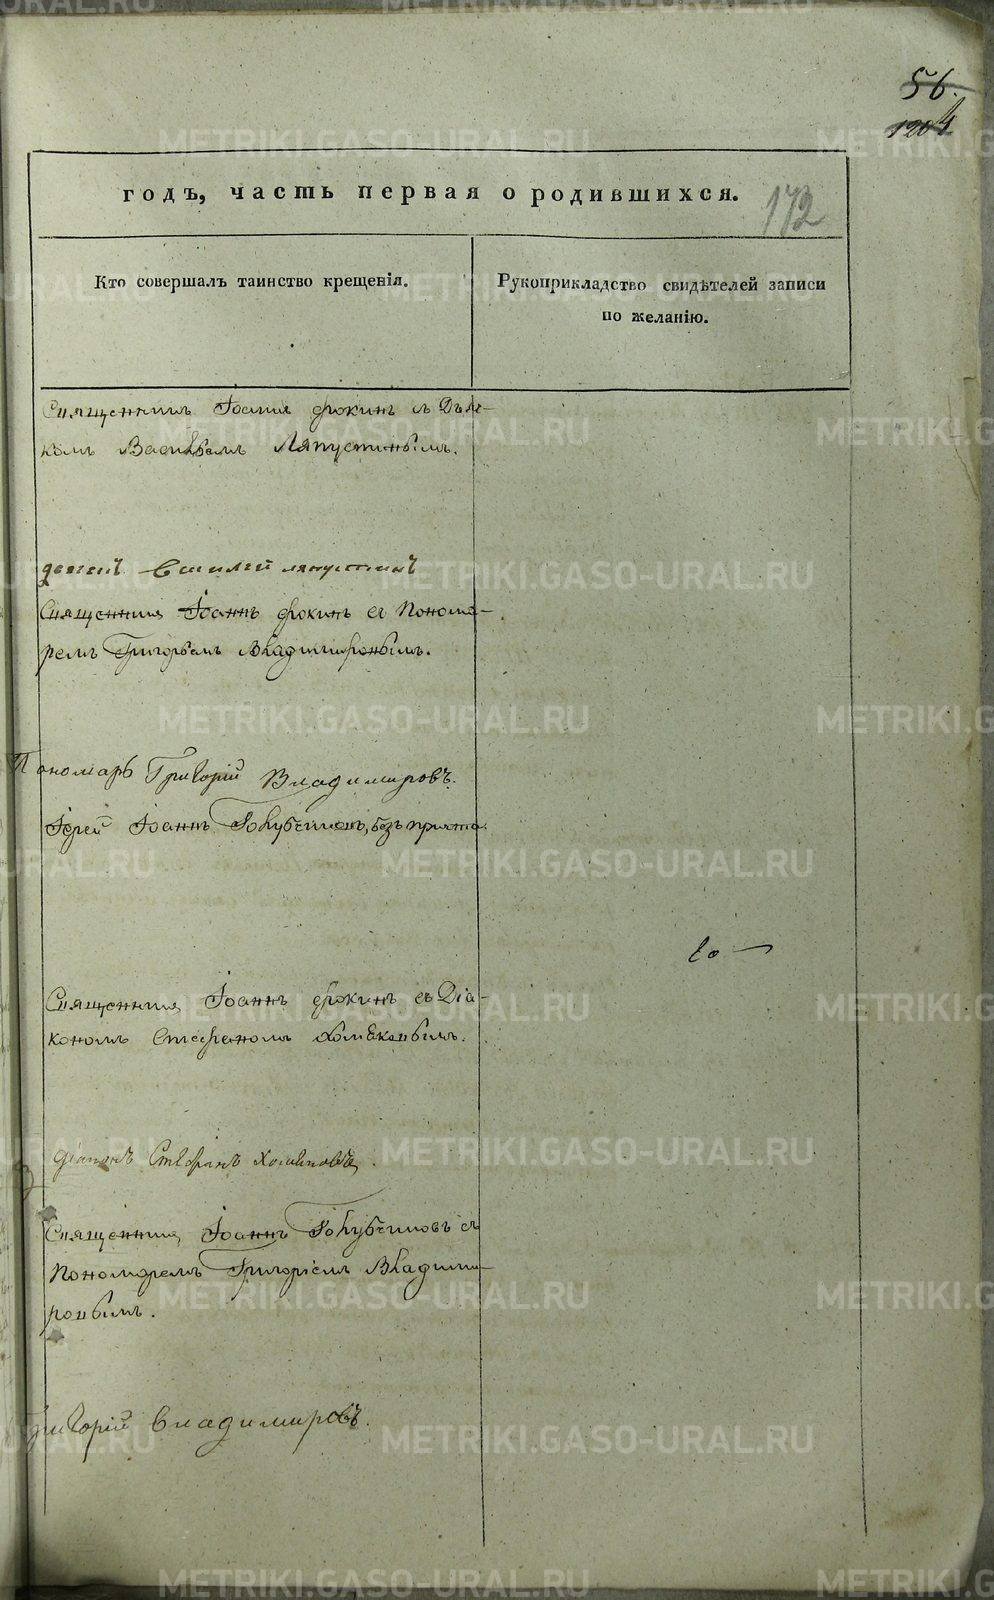 56.
1204
годъ, часть первая о родившихся.
172
Кто совершалъ таинство крещенія.
Рукоприкладство свидѣтелей записи
по желанію.
Священникъ Іоаннъ Фокинъ съ Дья-
комъ Васильемъ Ляпустинымъ.
Василей Ляпустинъ
Священникъ Іоаннъ Фокинъ съ Понома-
ремъ Григорьемъ Владимировымъ.
Пономарь Григорій Владимировъ.
Іерей Іоаннъ Голубчиковъ, безъ причта.
Священникъ Іоаннъ Фокинъ съ Діа-
кономъ Стефаномъ Хомяковымъ.
Діаконъ Стефанъ Хомяковъ.
Священникъ Іоаннъ Голубчиковъ съ
Пономаремъ Григоріемъ Владими-
ровымъ.
Григорій Владимировъ.
METRIKI.GASO-URAL.RU